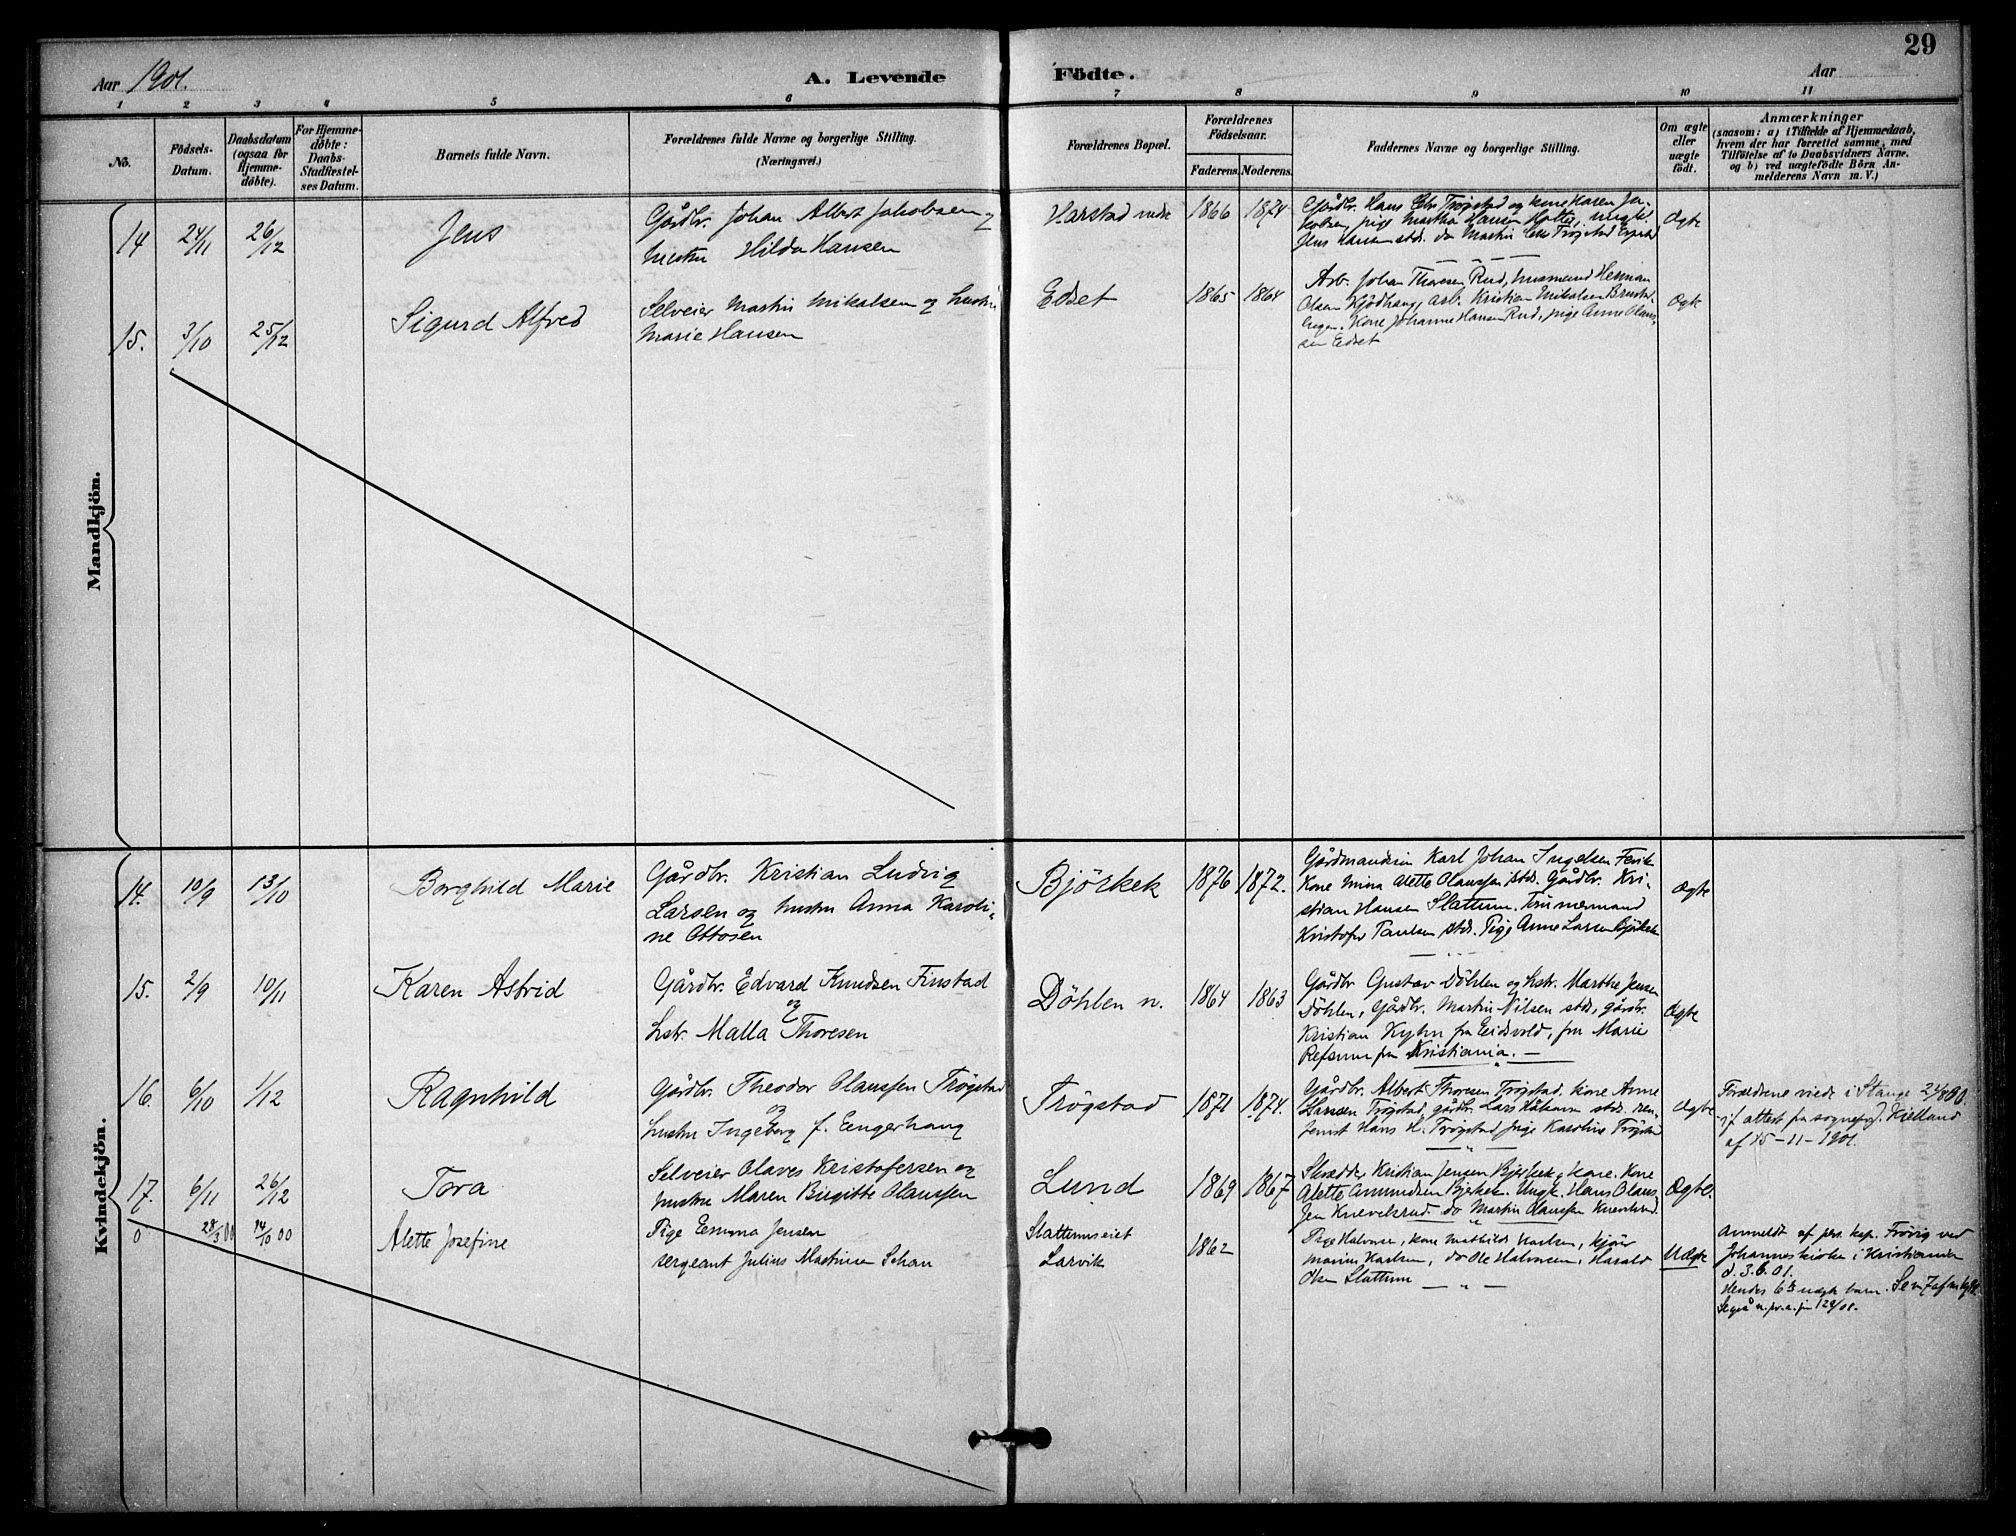 29
Aar 1901.
A. Levende Födte.
Aar
1 2 3 4 5 6 7 8 9 10 11
No.
Födsels-Datum.
Daabsdatum (ogsaa for Hjemme-döbte).
For Hjemme-döbte: Daabs-Stadfæstel-ses Datum.
Barnets fulde Navn.
Forældrenes fulde Navne og borgerlige Stilling.
(Næringsvei.)
Forældrenes Bopæl.
Forældrenes Födselsaar.
Faderens. Moderens.
Faddernes Navne og borgerlige Stilling.
Om ægte eller uægte födt.
Anmærkninger
(saasom: a) i Tilfælde af Hjemmedaab,
hvem der har forrettet samme, med
Tilföielse af to Daabsvidners Navne,
og b) ved uægtefödte Börn An-
melderens Navn m. V.)
Mandkjön.
14 24/11 26/12 Jens
Gårdbr. Johan Albert Jakobsen og
hustru Hilda Hansen
Harstad nedre 1866 1874
Gårdbr. Hans Chr. Trøgstad og kone Karen Ja-
kobsen, pige Martha Hansen ungk.
Jens Hansen stds. do Martin Chr. Trøgstad
Ægte
15. 3/10 25/12 Sigurd Alfred
Selveier Martin Mikalsen og hustru
Marie Hansen
Edset 1865 1864
Arb. Johan Thoresen Rud, husmand Herman
Olsen arb. Kristian Mikalsen
Kone Johanne Hansen Rud, pige Anne Olaus-
sen Edset
Ægte
Kvindekjön.
14. 10/9 13/10 Borghild Marie
Gårdbr. Kristian Ludvig
Larsen og hustru Anna Karoli-
ne Ottosen
Björkek 1876 1872.
Gårdmandssøn Karl Johan Ingelsen
Kone Mina Alette Olaussen stds. Gårdbr. Kri-
stian Hansen Slattum. Tømmermand
Kristofer Paulsen stds. Pige Anne Larsen Björkek
Ægte
15. 2/9 10/11 Karen Astrid
Gårdbr. Edvard Knudsen Finstad
og
hstr. Malla Thoresen
Döhlen n. 1864 1863
Gårdbr Gustav Döhlen og hstr. Marthe Jensen
Döhlen, Gårdbr. Martin Nilsen stds, gårdbr.
Kristian Kyhn fra Eidsvold, fru Marie
Refsum fra Kristiania.
Ægte
16. 6/10 1/12 Ragnhild
Gårdbr. Theodor Olaussen Trøgstad
og
hustru Ingeborg f. Engerhaug
Trøgstad 1871 1874.
Gårdbr. Albert Thoresen Trøgstad. kone Anne
Larsen Trøgstad, gårdbr. Lars stds.
Hans H. Trøgstad, pige Karoline
Ægte
Forældrene viede i Stange
if. attest fra sognepr. Kielland
af 15-11-1901.
17. 6/11 26/12 Tora
Selveier Olaves Kristofersen og
hustru Maren Birgitte Olaussen
Lund 1869 1867
Skrædder Kristian Jensen Kone
Alette Amundsen Bjerkek. Ungk. Hans Olaus-
sen Knevelsrud. do Martin Olaussen Knevelsrud.
Ægte.
0 28/3 00 14/10 00 Alette Josefine
Pige Emma Jensen
sergeant Julius Martinsen
Slattumseiet
Larvik
1862
Halvorsen, kone Mathilde Karlsen,
Karlsen, do Ole Halvorsen, Harald
Olsen Slattum
Uægte
Anmeldt af pers. kap. ved
Johannes kirke i Kristiania
d. 3.6.01.
Hendes 6te uægte barn.